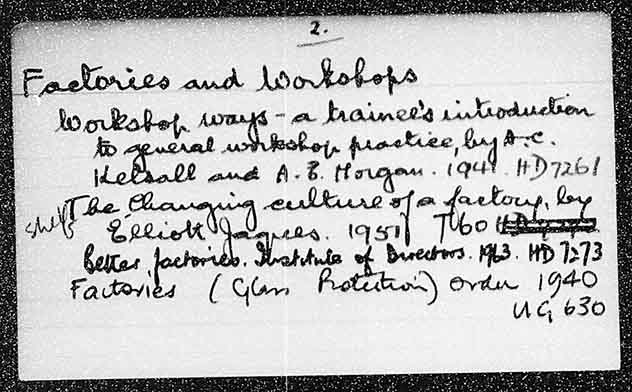 2.
Factories and Workshops
Workshop ways - a trainee's introduction
to general workshop practice, by A.C.
Kelsall and A. E. Morgan. 1941. HD7261
The Changing culture of a factory, by
shelf Elliott Jaques. 1951 T60
Better factories. Institute of Directors. 1963. HD 7273
Factories (Glass Protection) Order 1940
UG 630